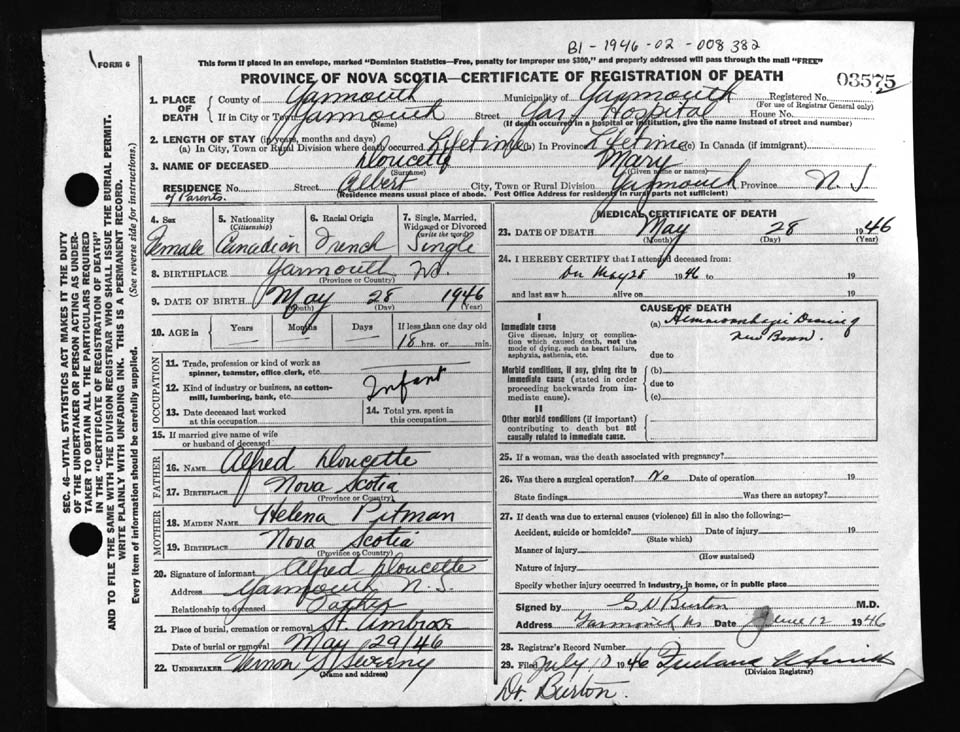 B1-1946-02-008382
FORM 6
This form if placed in an envelope, marked "Dominion Statistics—Free, penalty for improper use $300," and properly addressed will pass through the mail "FREE"
PROVINCE OF NOVA SCOTIA—CERTIFICATE OF REGISTRATION OF DEATH
03575
1. PLACE OF DEATH
County of Yarmouth Municipality of Yarmouth Registered No.
(For use of Registrar General only)
If in City or Town Yarmouth Street Yar Hospital House No.
(Name) (If death occurred in a hospital or institution, give the name instead of street and number)
2. LENGTH OF STAY (in years, months and days)
(a) In City, Town or Rural Division where death occurred Lifetime (b) In Province Lifetime (c) In Canada (if immigrant)
3. NAME OF DECEASED Doucette Mary
(Surname) (Given name or names)
RESIDENCE No. Street Albert City, Town or Rural Division Yarmouth Province N.S
of Parents. (Residence means usual place of abode. Post Office Address for residents in rural parts not sufficient)
4. Sex Female
5. Nationality (Citizenship) Canadian
6. Racial Origin French
7. Single, Married, Widowed or Divorced (write the word) Single
8. BIRTHPLACE Yarmouth
(Province or Country)
9. DATE OF BIRTH May 28 1946
(Month) (Day) (Year)
10. AGE in Years Months Days If less than one day old
18 hrs. or min.
OCCUPATION
11. Trade, profession or kind of work as
spinner, teamster, office clerk, etc.
12. Kind of industry or business, as cotton-
mill, lumbering, bank, etc. Infant
13. Date deceased last worked
at this occupation
14. Total yrs. spent in
this occupation
15. If married give name of wife
or husband of deceased
FATHER
16. NAME Alfred Doucette
17. BIRTHPLACE Nova Scotia
(Province or Country)
MOTHER
18. MAIDEN NAME Helena Pitman
19. BIRTHPLACE Nova Scotia
(Province or Country)
20. Signature of informant Alfred Doucette
Address Yarmouth N.S.
Relationship to deceased Father
21. Place of burial, cremation or removal St. Ambrose
Date of burial or removal May 29/46
22. UNDERTAKER Vernon S Sweeny
(Name and address)
MEDICAL CERTIFICATE OF DEATH
23. DATE OF DEATH May 28 1946
(Month) (Day) (Year)
24. I HEREBY CERTIFY that I attended deceased from:
On May 28 1946 to 19
and last saw h alive on 19
CAUSE OF DEATH
I
Immediate cause
Give disease, injury or complica-
tion which caused death, not the
mode of dying, such as heart failure,
asphyxia, asthenia, etc.
(a) New Born.
due to
Morbid conditions, if any, giving rise to
immediate cause (stated in order
proceeding backwards from im-
mediate cause).
(b)
due to
(c)
II
Other morbid conditions (if important)
contributing to death but not
causally related to immediate cause.
25. If a woman, was the death associated with pregnancy?
26. Was there a surgical operation? No Date of operation 19
State findings Was there an autopsy?
27. If death was due to external causes (violence) fill in also the following:—
Accident, suicide or homicide? Date of injury 19
(State which)
Manner of injury
(How sustained)
Nature of injury
Specify whether injury occurred in industry, in home, or in public place
Signed by G V Burton M.D.
Address Yarmouth Ns Date June 12 1946
28. Registrar's Record Number
29. Filed July 10 1946
(Division Registrar)
Dr. Burton.
SEC. 46—VITAL STATISTICS ACT MAKES IT THE DUTY
OF THE UNDERTAKER OR PERSON ACTING AS UNDER-
TAKER TO OBTAIN ALL THE PARTICULARS REQUIRED
IN THE "CERTIFICATE OF REGISTRATION OF DEATH"
AND TO FILE THE SAME WITH THE DIVISION REGISTRAR WHO SHALL ISSUE THE BURIAL PERMIT.
WRITE PLAINLY WITH UNFADING INK. THIS IS A PERMANENT RECORD.
Every item of information should be carefully supplied. (See reverse side for instructions.)